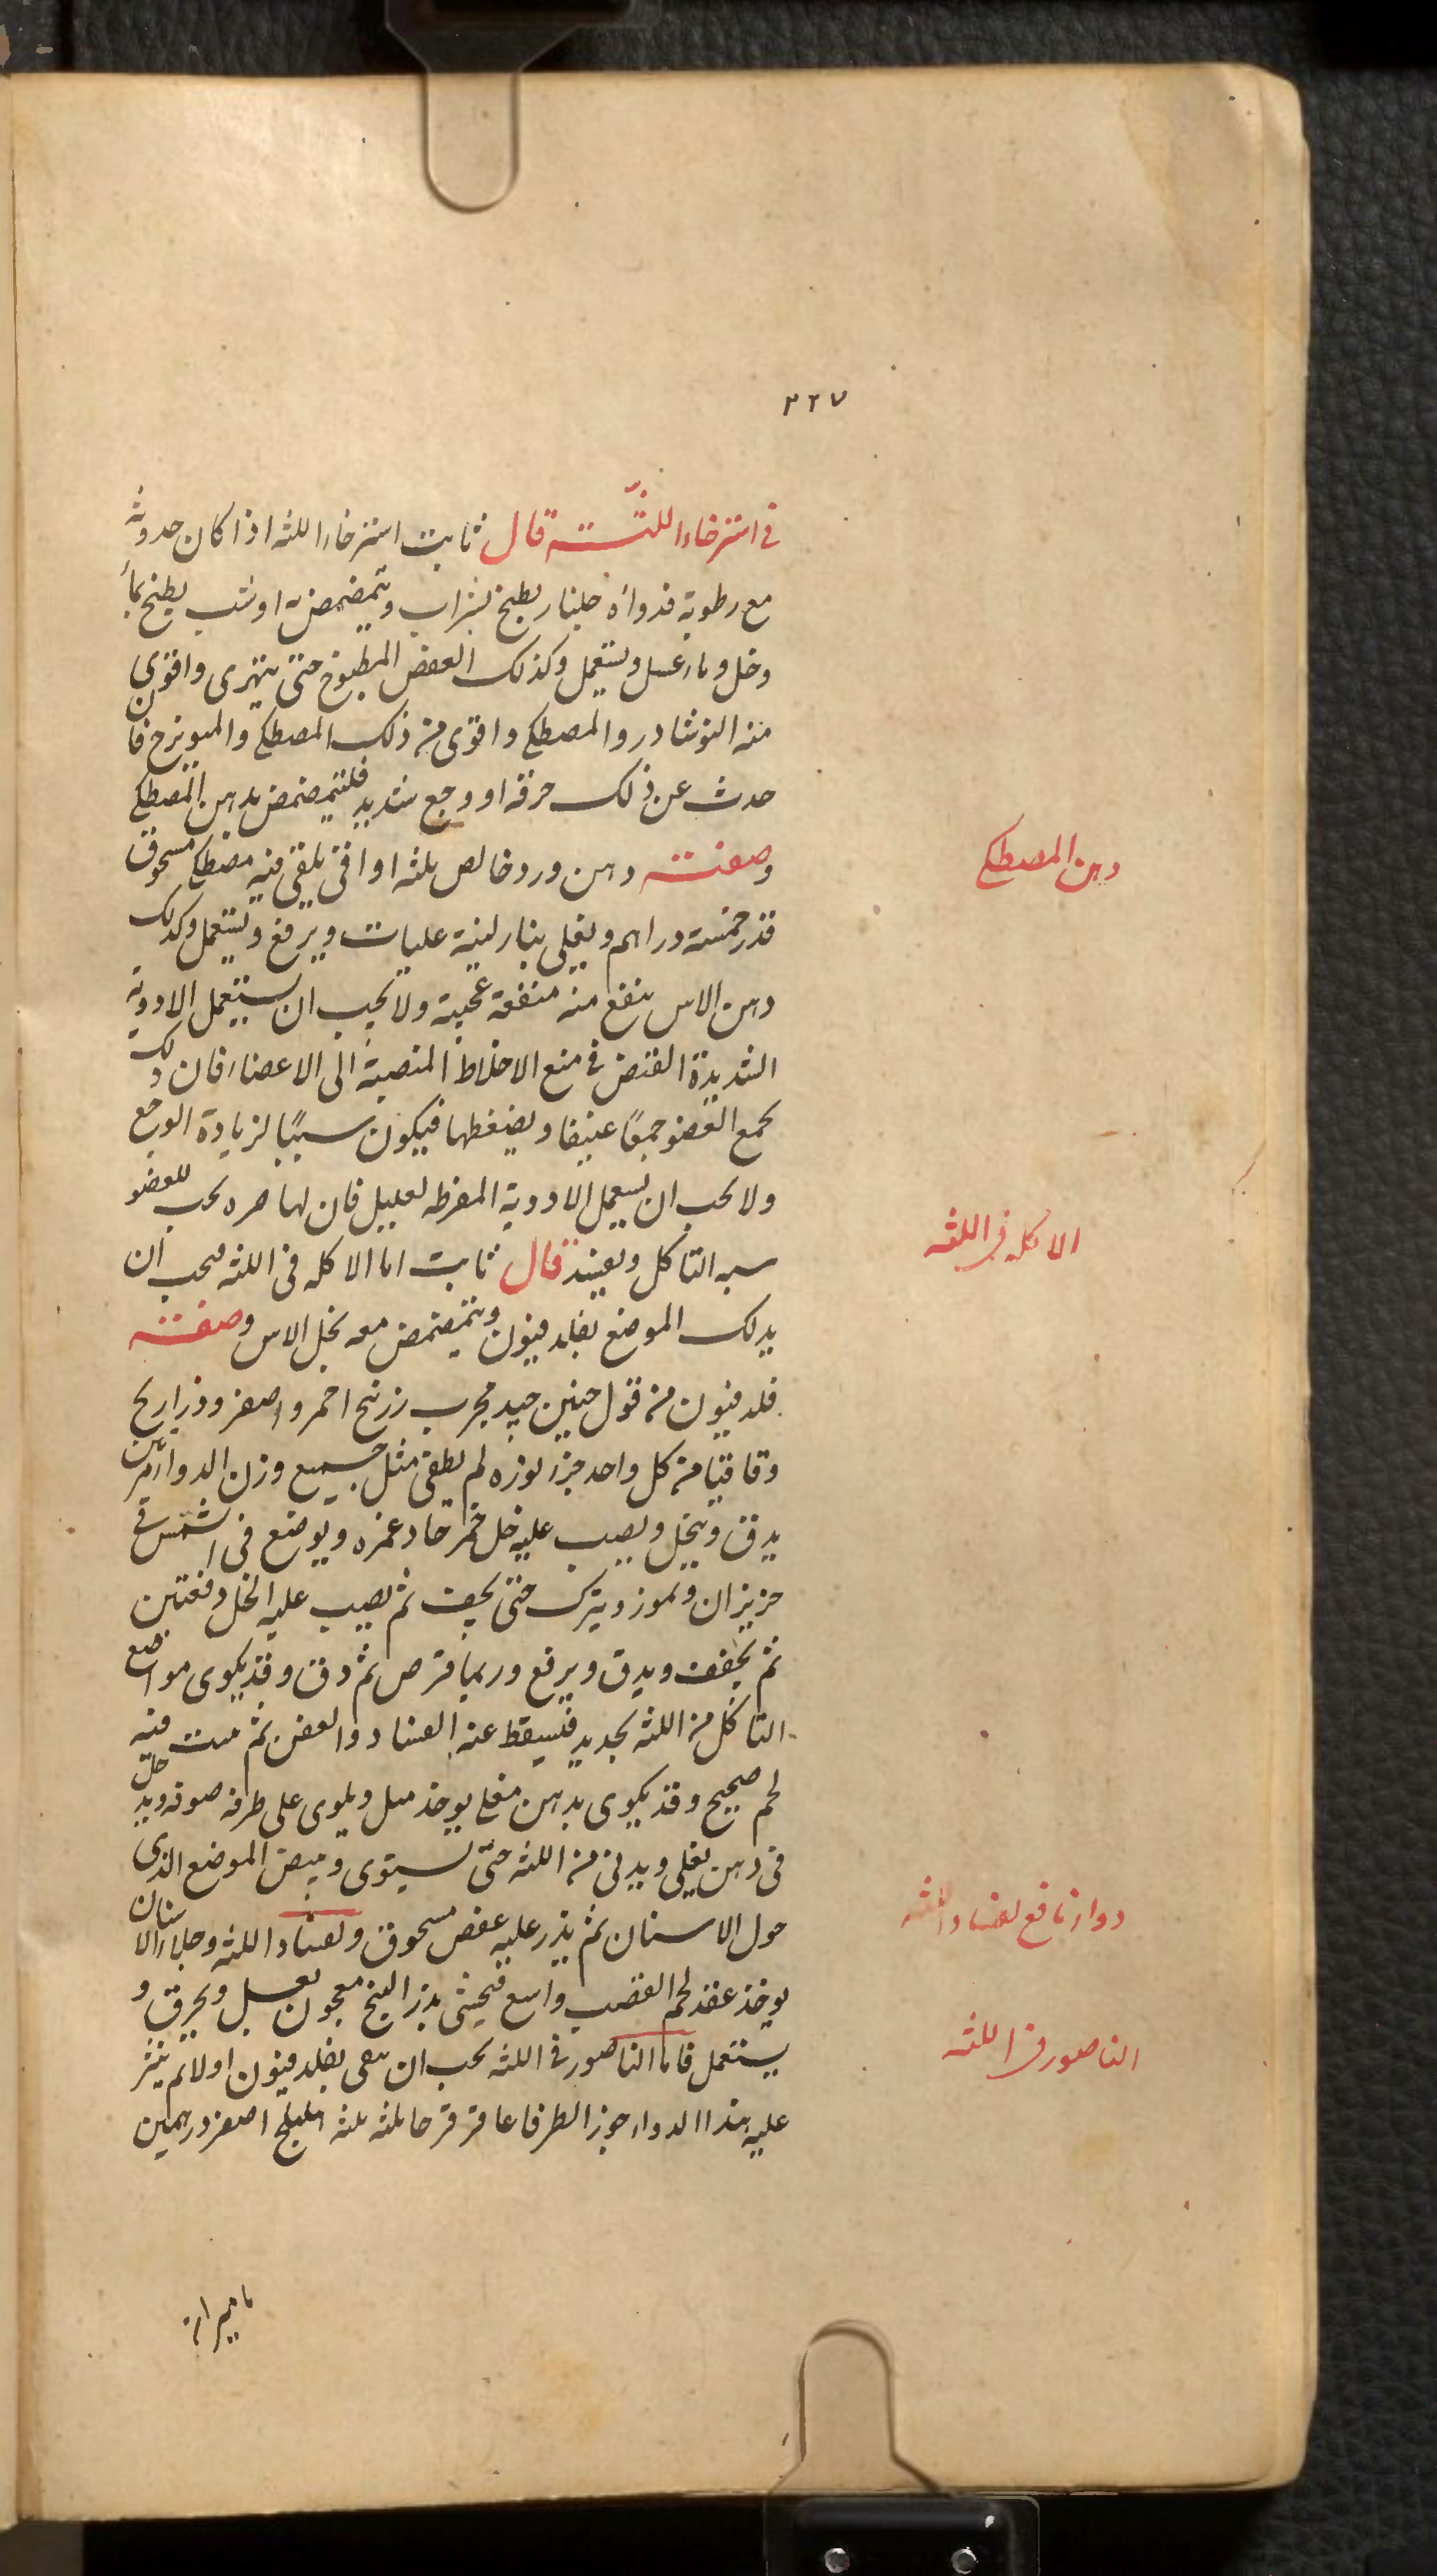 ٣٢٧
في استرخاء اللثة قال ثابت استرخاء اللثه اذا كان حدوثه
مع رطوبة فدواؤه جلنار يطبخ بشراب ويتمضمض به او شب يطبخ بماء
وخل وماء عسل ويستعمل وكذلك العفص المطبوخ حتى يتهرى واقوى
منه النوشادر والمصطكى واقوى من ذلك المصطكى والميويزج فان
حدث عن ذلك حرقه او وجع شديد فليتمضمض بدهن المصطكى
وصفته دهن ورد خالص ثلثه اواقى يلقى فيه مصطكى مسحوق
قدر خمسة دراهم ويغلى بنار لينة غليات ويرفع ويستعمل وكذلك
دهن الاس ينفع منه منفعة عجيبة ولا يجب ان يستعمل الادوية
الشديدة القبض في منع الاخلاط المنصبة الى الاعضاء فان ذلك
يجمع العضو جمعًا عنيفا ويضغطها فيكون سببًا لزيادة الوجع
ولا يجب ان يستعمل الادوية المفرطه لعليل فان لها حده يجب للعضو
سبه التاكل ويعيند قال ثابت اما الاكله فى اللثه فيجب ان
يدلك الموضع بفلدفيون ويتمضمض معه بخل الاس وصفته
فلدفيون من قول حنين جيد مجرب زرنيخ احمر واصفر وذراريح
وقاقيا من كل واحد جزء نوره لم يطفى مثل جميع وزن الدواء مرتين
يدق وينخل ويصب عليه خل خمر حاد غمره ويوضع فى الشمس في
حزيران وتموز ويترك حتى يجف ثم يصب عليه الخل دفعتين
ثم يجفف ويدق ويرفع وربما قرص ثم دق وقد يكوى مواضع
التاكل من اللثه بحديد فيسقط عنه الفساد والعفن ثم ينبت فيه
لحم صحيح وقد يكوى بدهن مغلى يوخذ ميل ويلوى على طرفه صوفه ويدخل
فى دهن يغلى ويدنى من اللثه حتى يستوى ويبيض الموضع الذى
حول الاسنان ثم يذر عليه عفص مسحوق ولفساد اللثه وجلاء الاسنان
يوخذ عقد لحم القصب واسع فيحشى بزر البنج معجون بعسل ويحرق و
يستعمل فاما الناصور في اللثه يجب ان ينقى بفلدفيون اولا ثم ينثر
عليه هذا الدواء جوز الطرفا عاقرقرحا ثلثه ثلثه اهليلج اصفر درهمين
ماميران
دهن المصطكى
الاكله فى اللثه
دواء نافع لفساد اللثه
الناصور فى اللثه